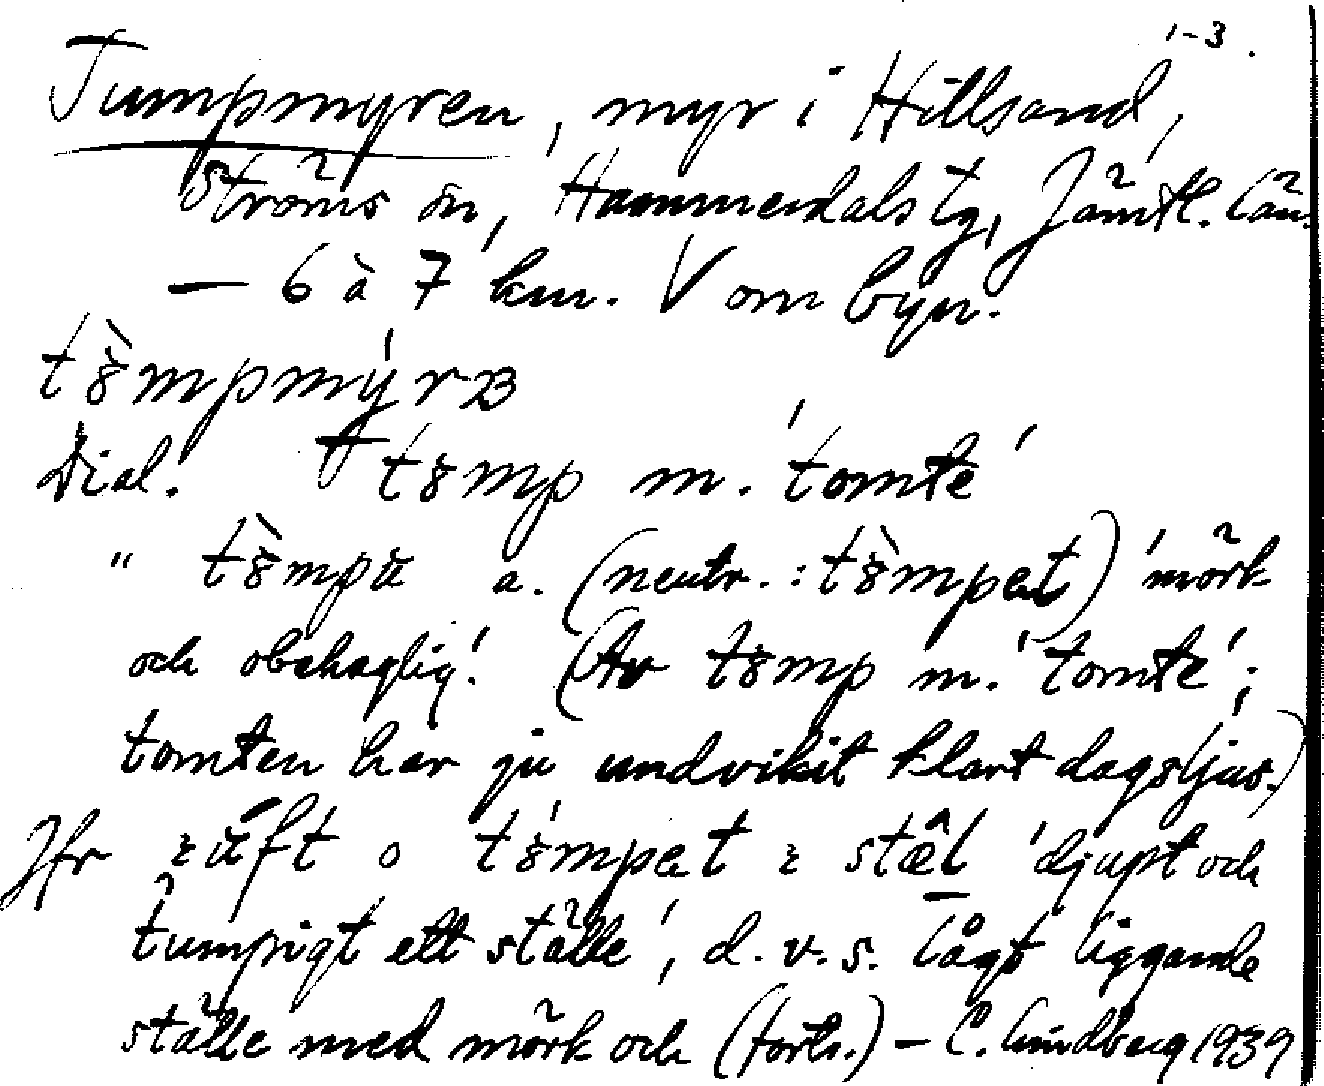 1-3.
Tumpmyren, myr i Hillsand,
Ströms sn, Hammerdals tg, Jämtl. län.
— 6 à 7 km. V om byn.
tə̀mpmýrɞ
Dial. tɵmp m. 'tomte'
" tɵ̀mpɜ a. (neutr.: tɵ̀mpɐt) 'mörk
och obehaglig'. (Av tɵmp m. 'tomte';
tomten har ju undvikit klart dagsljus.)
Jfr o tɵ́mpɐt stæ̂l 'djupt och
tumpigt ett ställe', d.v.s. lågt liggande
ställe med mörk och (forts.) — C. Lindberg 1939